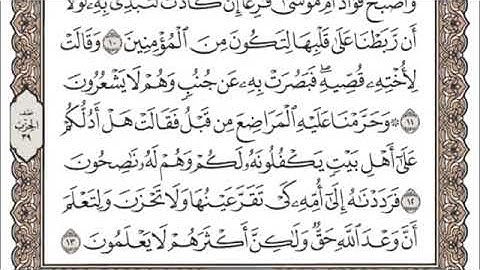 وَأَصْبَحَ فُؤَادُ أُمِّ مُوسَىٰ فَٰرِغًا إِن كَادَتْ لَتُبْدِى بِهِۦ لَوْلَآ
أَن رَّبَطْنَا عَلَىٰ قَلْبِهَا لِتَكُونَ مِنَ ٱلْمُؤْمِنِينَ ١٠ وَقَالَتْ
لِأُخْتِهِۦ قُصِّيهِ فَبَصُرَتْ بِهِۦ عَن جُنُبٍ وَهُمْ لَا يَشْعُرُونَ
١١ ۞ وَحَرَّمْنَا عَلَيْهِ ٱلْمَرَاضِعَ مِن قَبْلُ فَقَالَتْ هَلْ أَدُلُّكُمْ
عَلَىٰٓ أَهْلِ بَيْتٍ يَكْفُلُونَهُۥ لَكُمْ وَهُمْ لَهُۥ نَٰصِحُونَ
١٢ فَرَدَدْنَٰهُ إِلَىٰٓ أُمِّهِۦ كَىْ تَقَرَّ عَيْنُهَا وَلَا تَحْزَنَ وَلِتَعْلَمَ
أَنَّ وَعْدَ ٱللَّهِ حَقٌّ وَلَٰكِنَّ أَكْثَرَهُمْ لَا يَعْلَمُونَ ١٣
نصف
الحزب
٣٩